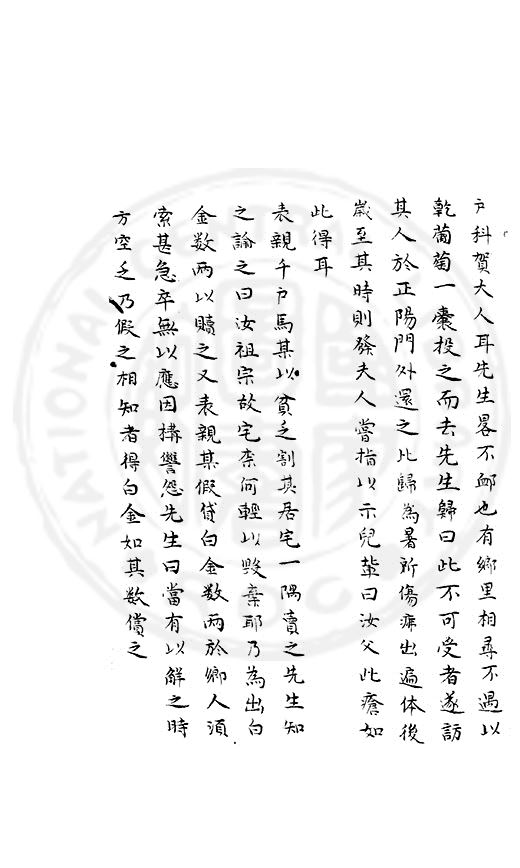 戶科賀大人耳先生畧不䘏也有鄉里相尋不遇以
乾葡萄一囊投之而去先生歸曰此不可受者遂訪
其人於正陽門外還之比歸為暑所傷瘡出遍体後
歲至其時則發夫人嘗指以示兒輩曰汝父此瘡如
此得耳
表親千戶馬某以貧乏割其居宅一隅賣之先生知
之諭之曰汝祖宗故宅柰何輕以毀棄耶乃為出白
金数兩以贖之又表親某假貸白金数兩於鄉人湏
索甚急卒無以應因搆讐怨先生曰當有以解之時
方空乏乃假之相知者得白金如其数償之
NATIONAL CENTRAL LIBRARY